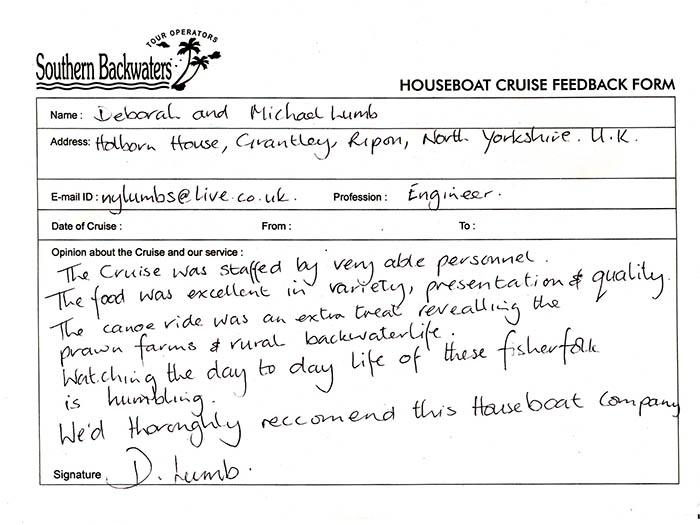 TOUR OPERATORS
Southern Backwaters
HOUSEBOAT CRUISE FEEDBACK FORM
Name : Deborah and Michael Lumb
Address: Holborn House, Grantley, Ripon, North Yorkshire. U.K.
E-mail ID : nylumbs@live.co.uk. Profession : Engineer.
Date of Cruise : From : To :
Opinion about the Cruise and our service :
The Cruise was staffed by very able personnel.
The food was excellent in variety, presentation & quality.
The canoe ride was an extra treat revealling the
prawn farms & rural backwaterlife.
Watching the day to day life of these fisherfolk
is humbling.
We'd thoroughly reccomend this Houseboat Company
Signature D. Lumb.